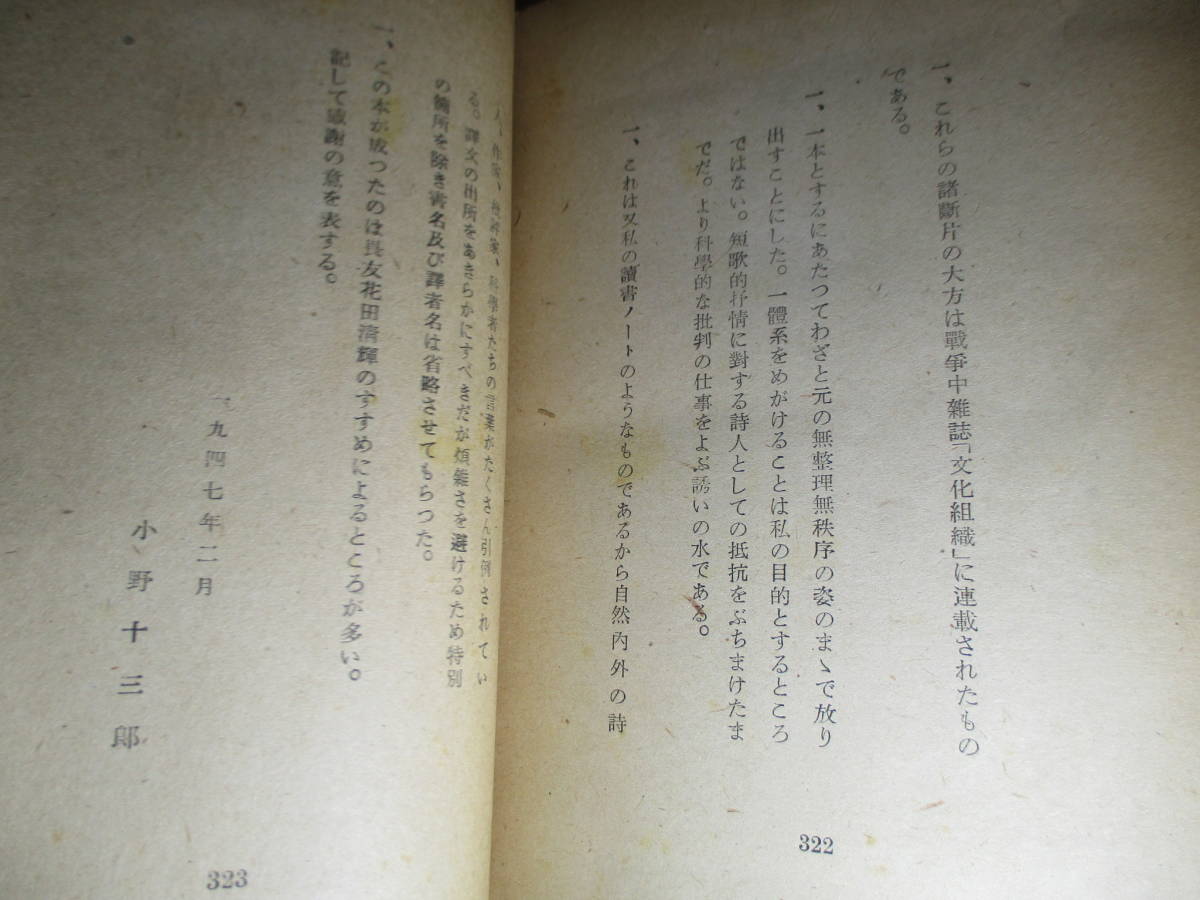 一、これらの諸斷片の大方は戰爭中雜誌「文化組織」に連載されたもの
である。
一、一本とするにあたつてわざと元の無整理無秩序の姿のまゝで放り
出すことにした。一體系をめがけることは私の目的とするところ
ではない。短歌的抒情に對する詩人としての抵抗をぶちまけたま
でだ。より科學的な批判の仕事をよぶ誘いの水である。
一、これは又私の讀書ノートのようなものであるから自然內外の詩
322
人、作家、批評家、科學者たちの言葉がたくさん引例されてい
る。譯文の出所をあきらかにすべきだが煩雜さを避けるため特別
の箇所を除き書名及び譯者名は省略させてもらつた。
一、この本が成つたのは畏友花田淸輝のすすめによるところが多い。
記して感謝の意を表する。
一九四七年二月
小野十三郎
323